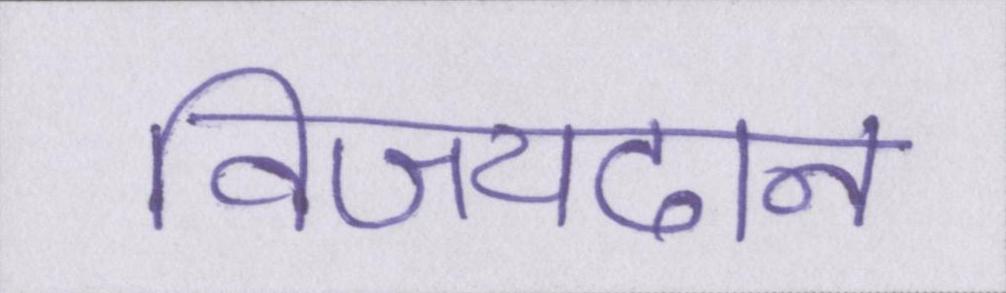 विजयदान